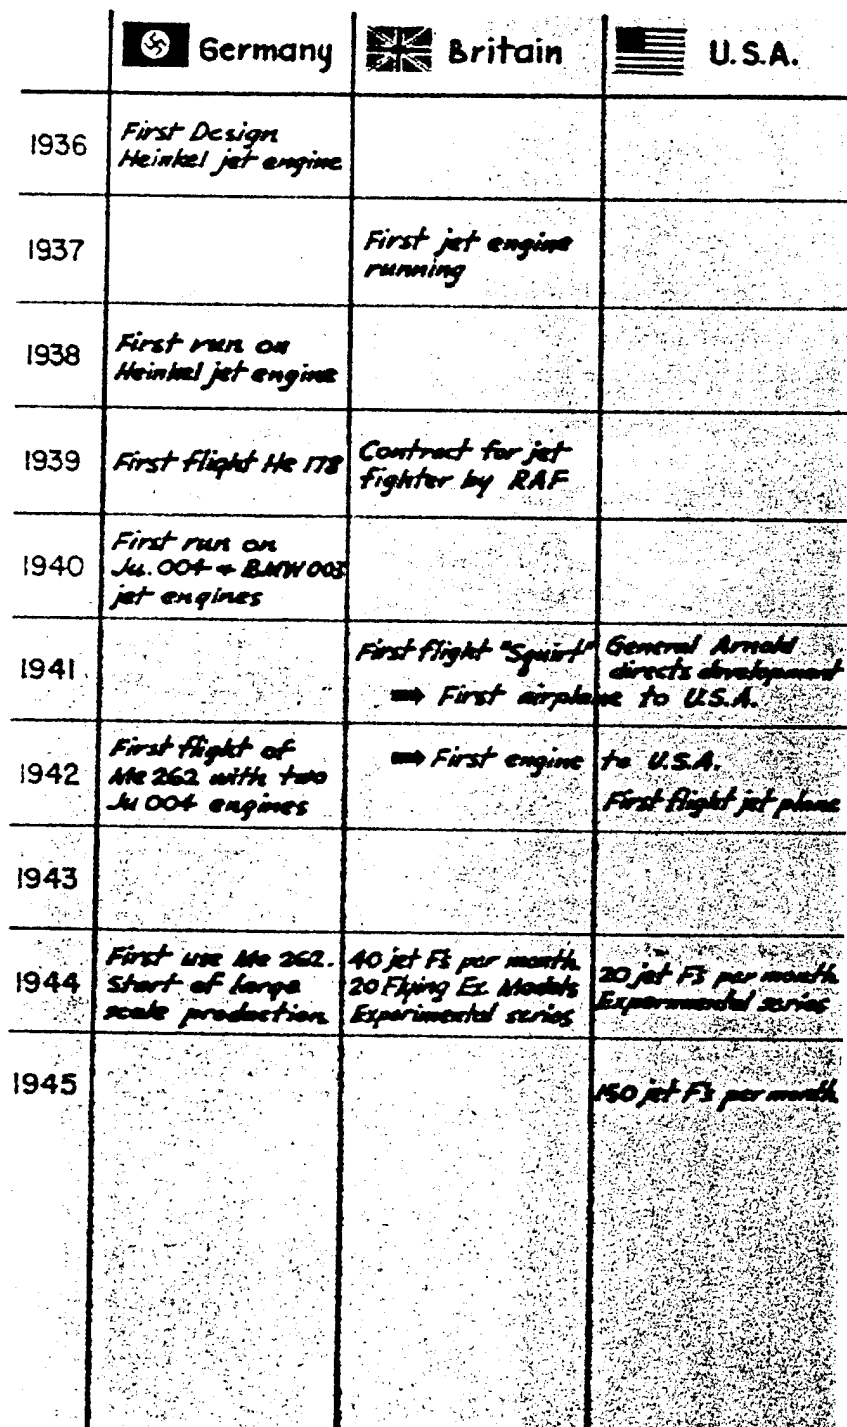 Germany Britain U.S.A.
1936
First Design
Heinkel jet engine
1937
First jet engine
running
1938
First run on
Heinkel jet engine
1939
First flight He 178
Contract for jet
fighter by RAF
1940
First run on
Ju.004 + BMW 003
jet engines
1941
First flight "Squirt"
General Arnold
directs development
➡ First airplane to U.S.A.
1942
First flight of
Me 262 with two
Ju 004 engines
➡ First engine to U.S.A.
First flight jet plane
1943
1944
First use Me 262.
Start of large
scale production
40 jet F's per month
20 Flying Ex. Models
Experimental series
20 jet F's per month
Experimental series
1945
150 jet F's per month